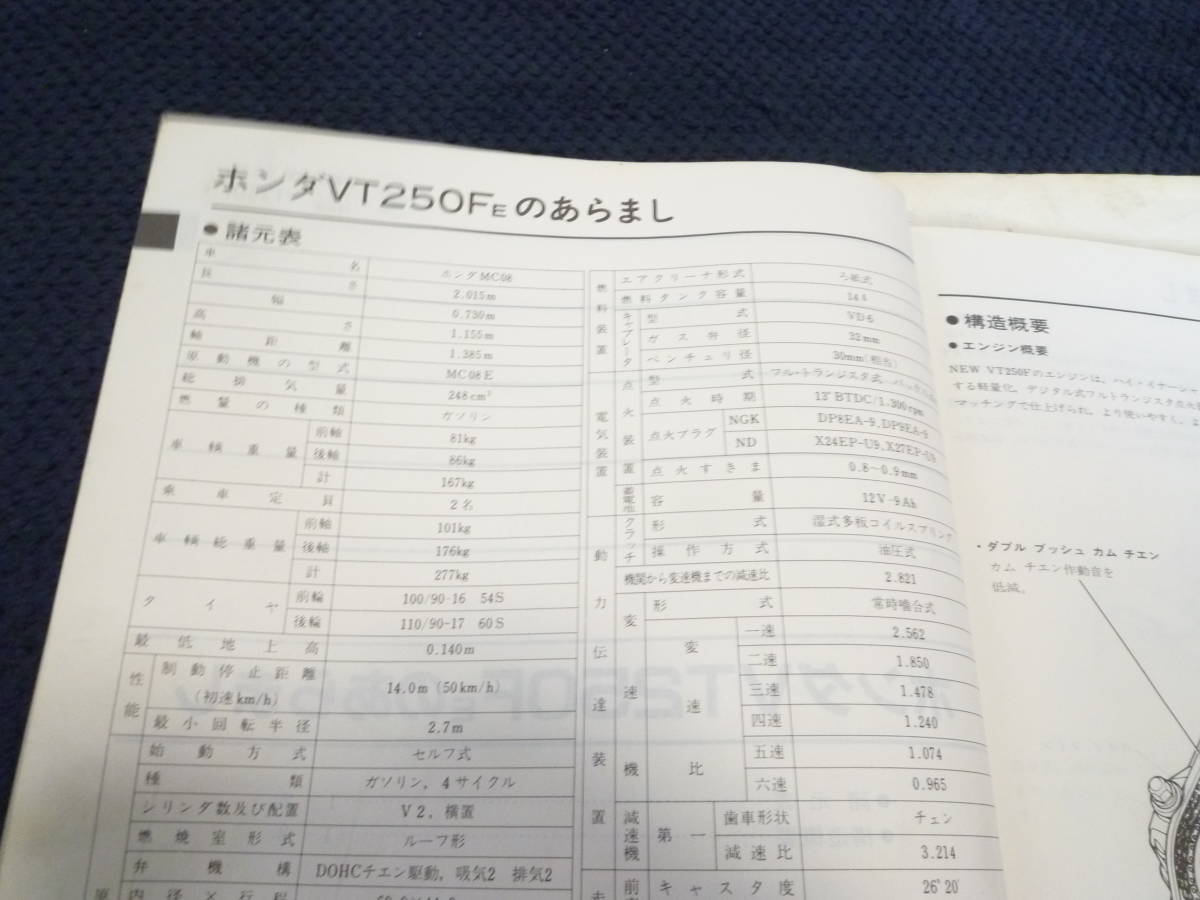 ホンダVT250FEのあらまし
●諸元表
車名 ホンダMC08
長さ 2.015m
幅 0.730m
高さ 1.155m
軸距離 1.385m
原動機の型式 MC08E
総排気量 248cm³
燃量の種類 ガソリン
車輌重量 前軸 81kg
後軸 86kg
計 167kg
乗車定員 2名
車輌総重量 前軸 101kg
後軸 176kg
計 277kg
タイヤ 前輪 100/90-16 54S
後輪 110/90-17 60S
最低地上高 0.140m
性能 制動停止距離 (初速km/h) 14.0m (50km/h)
最小回転半径 2.7m
始動方式 セルフ式
種類 ガソリン, 4サイクル
シリンダ数及び配置 V2, 横置
燃焼室形式 ルーフ形
弁機構 DOHCチエン駆動, 吸気2 排気2
原 内径×行程
燃料装置 エアクリーナ形式 ろ紙式
燃料タンク容量 14ℓ
キャブレータ 型式 VD6
ガス弁径 32mm
ベンチュリ径 30mm(相当)
電気装置 点火装置 型式 フル・トランジスタ式
点火時期 13°BTDC/1,300rpm
点火プラグ NGK DP8EA-9, DP9EA-9
ND X24EP-U9, X27EP-U9
点火すきま 0.8~0.9mm
蓄電池 容量 12V-9Ah
動力伝達装置 クラッチ 形式 湿式多板コイルスプリング
操作方式 油圧式
機関から変速機までの減速比 2.821
変速機 形式 常時噛合式
変速比 一速 2.562
二速 1.850
三速 1.478
四速 1.240
五速 1.074
六速 0.965
減速機 第一 歯車形状 チェン
減速比 3.214
前 キャスタ度 26°20′
●構造概要
●エンジン概要
NEW VT250Fのエンジンは、ハイ・イナーシャ
する軽量化、デジタル式フルトランジスタ点火
マッチングで仕上げられ、より使いやすく、よ
・ダブル プッシュ カム チエン
カム チエン作動音を
低減。